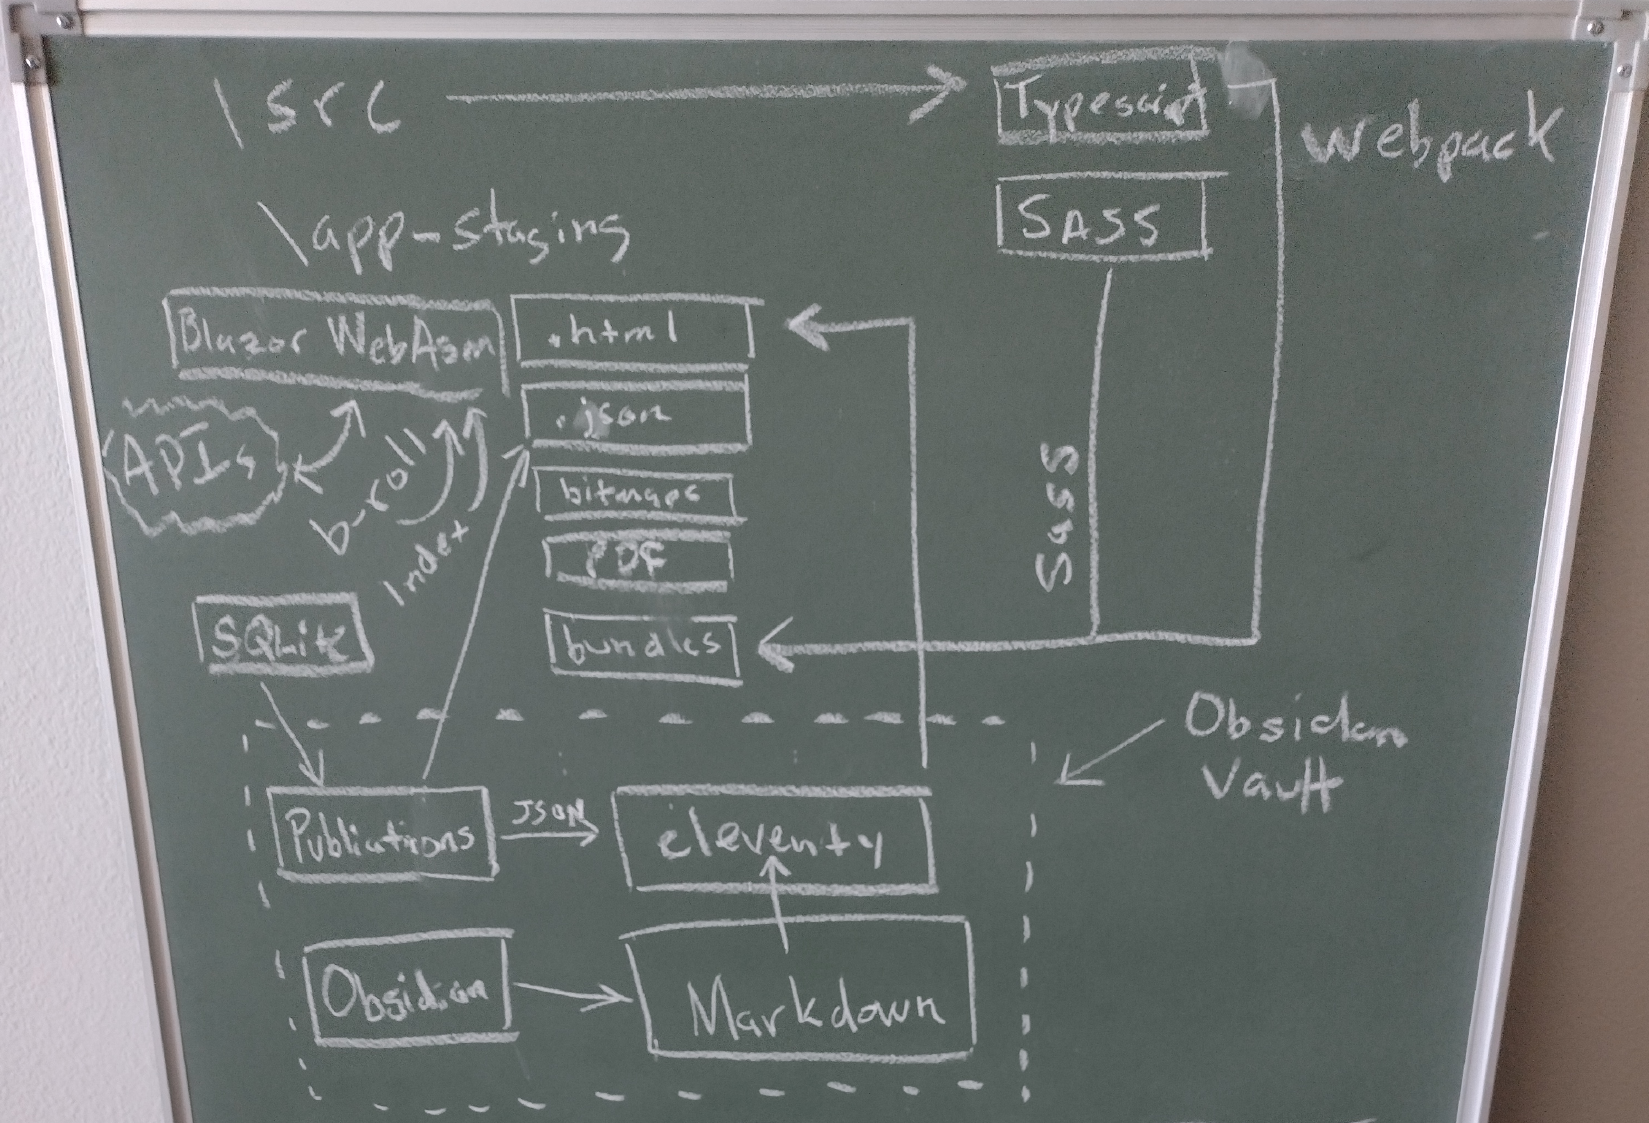 \src
Typescript
webpack
SASS
\app-staging
Blazor WebAsm
.html
.json
APIs
b-roll
Index
bitmaps
PDF
Sass
SQLite
bundles
Obsidian
Vault
Publications
JSON
eleventy
Obsidian
Markdown